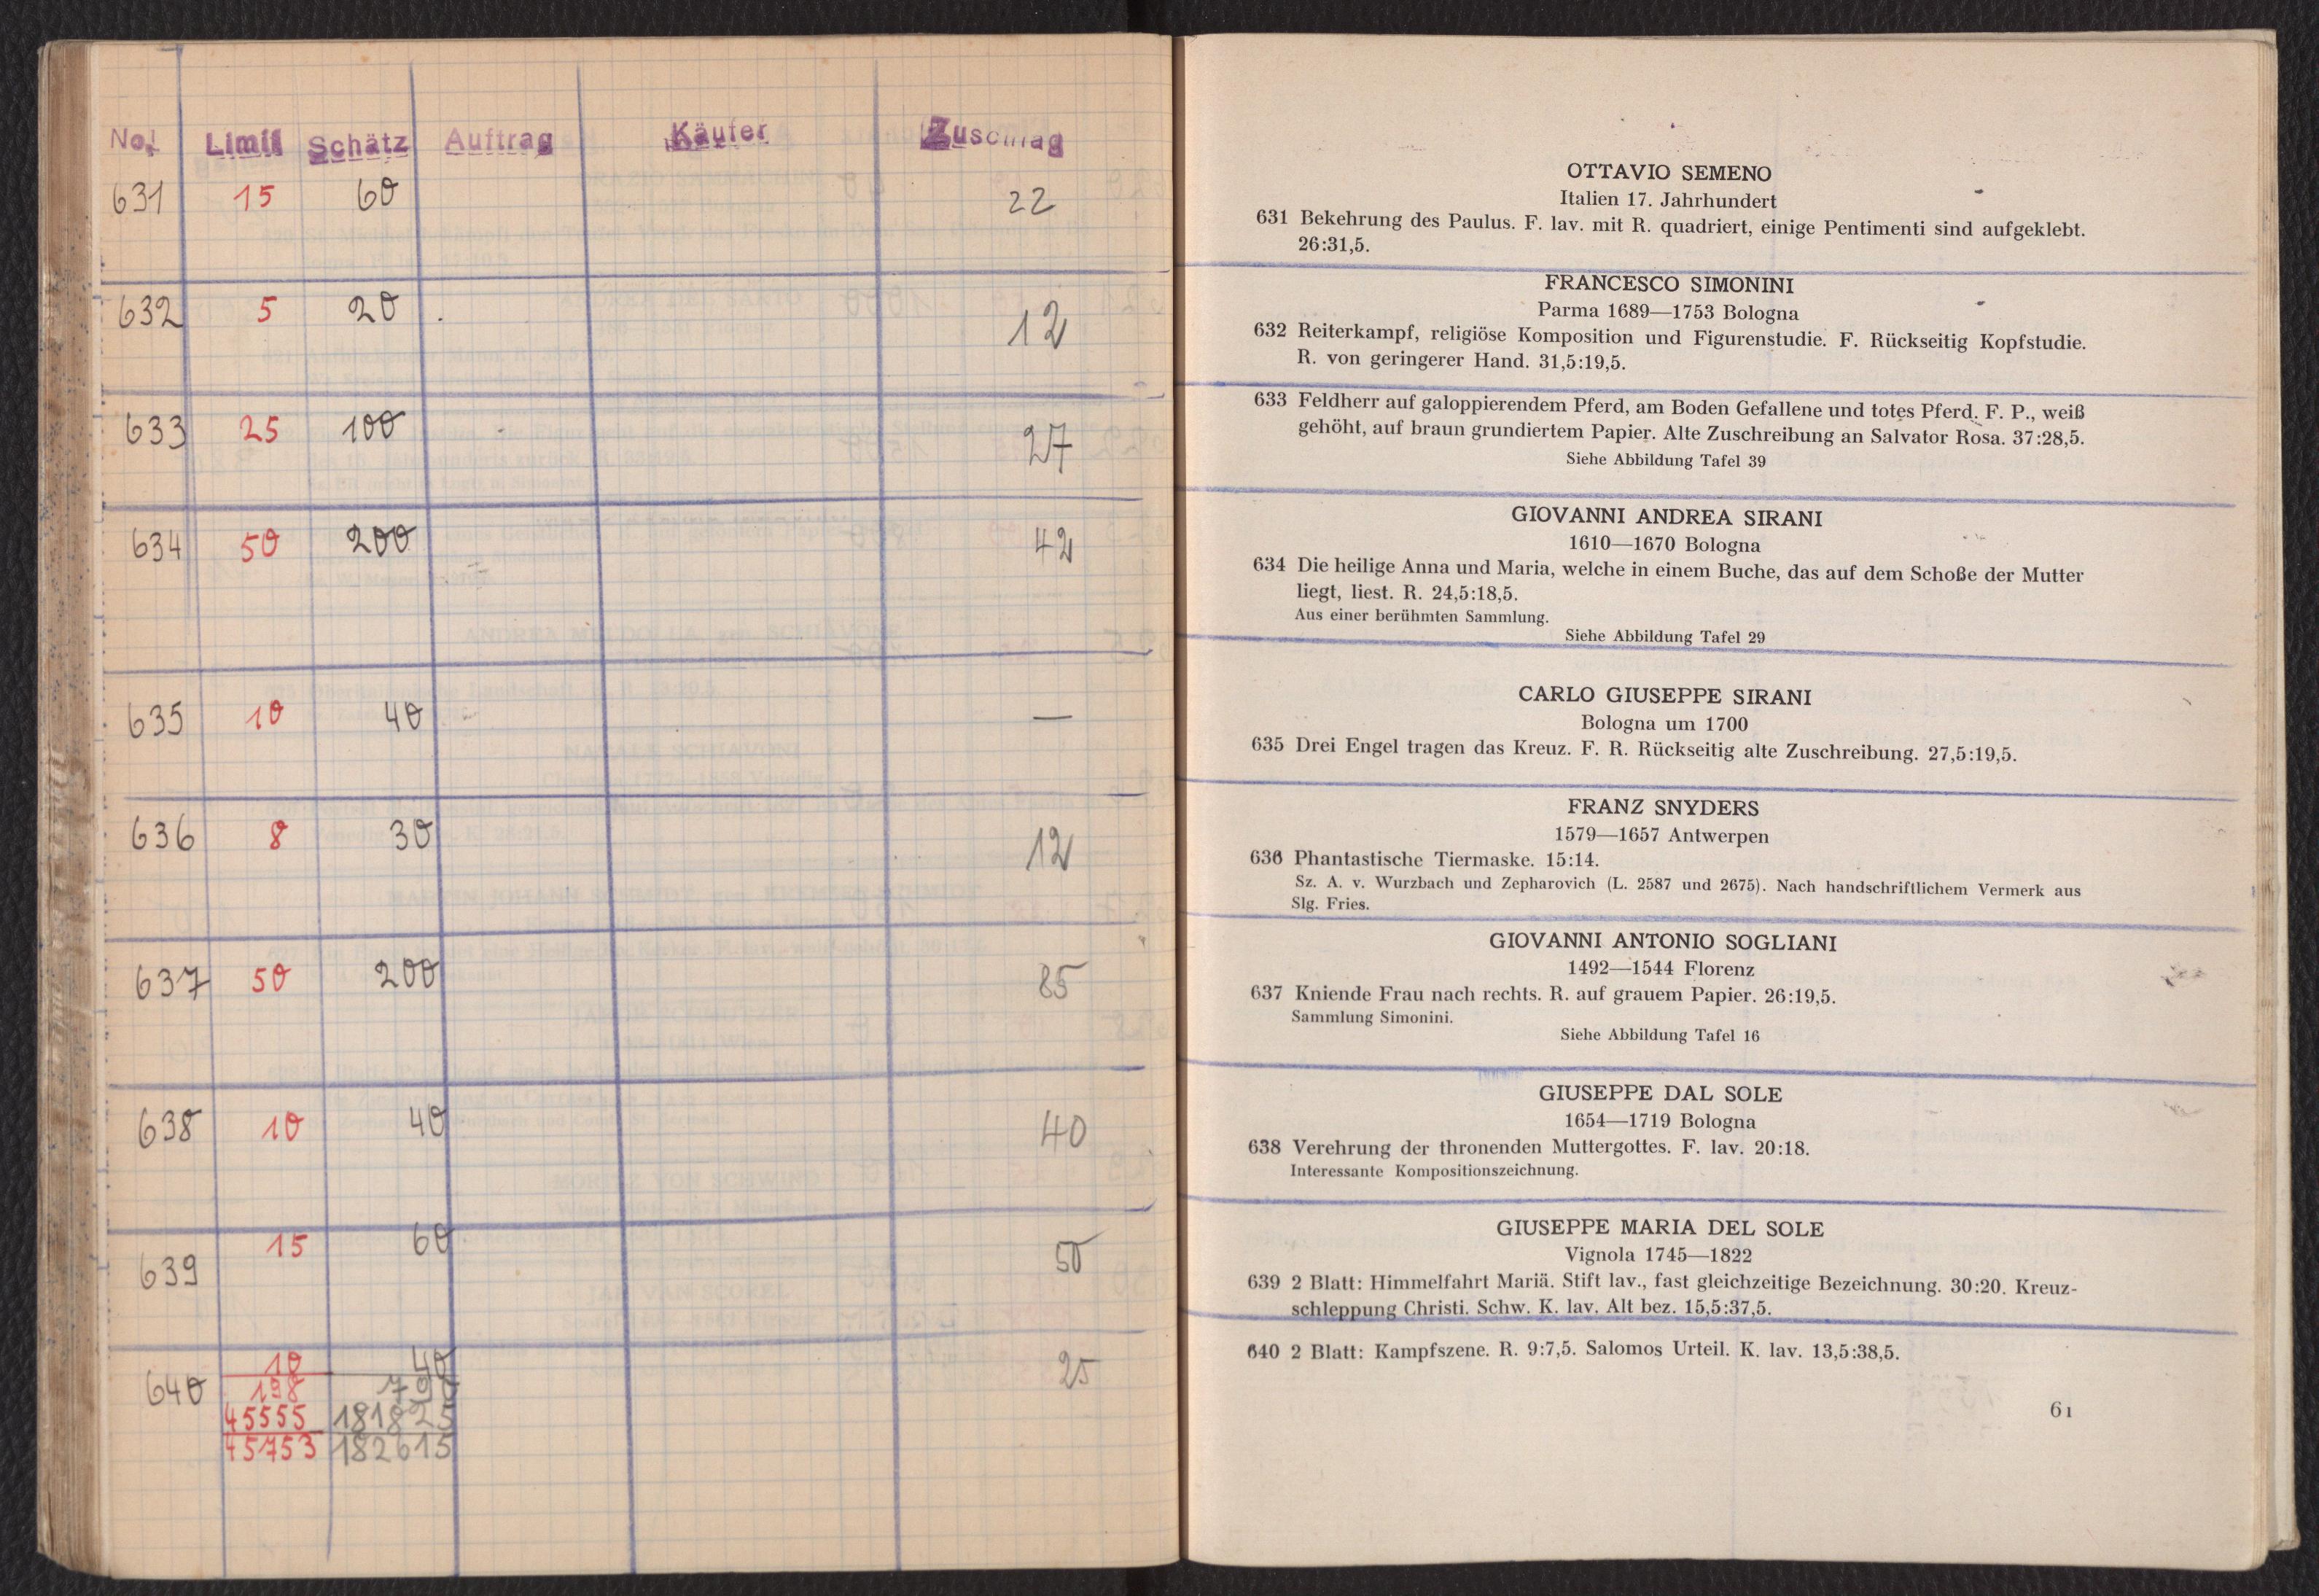 No. Limit Schätz Auftrag Käufer Zuschlag
631 15 60 22
632 5 20 12
633 25 100 27
634 50 200 42
635 10 40 —
636 8 30 12
637 50 200 85
638 10 40 40
639 15 60 50
640 10 40 25
198 790
45555 181825
45753 182615
OTTAVIO SEMENO
Italien 17. Jahrhundert
631 Bekehrung des Paulus. F. lav. mit R. quadriert, einige Pentimenti sind aufgeklebt.
26:31,5.
FRANCESCO SIMONINI
Parma 1689—1753 Bologna
632 Reiterkampf, religiöse Komposition und Figurenstudie. F. Rückseitig Kopfstudie.
R. von geringerer Hand. 31,5:19,5.
633 Feldherr auf galoppierendem Pferd, am Boden Gefallene und totes Pferd. F. P., weiß
gehöht, auf braun grundiertem Papier. Alte Zuschreibung an Salvator Rosa. 37:28,5.
Siehe Abbildung Tafel 39
GIOVANNI ANDREA SIRANI
1610—1670 Bologna
634 Die heilige Anna und Maria, welche in einem Buche, das auf dem Schoße der Mutter
liegt, liest. R. 24,5:18,5.
Aus einer berühmten Sammlung.
Siehe Abbildung Tafel 29
CARLO GIUSEPPE SIRANI
Bologna um 1700
635 Drei Engel tragen das Kreuz. F. R. Rückseitig alte Zuschreibung. 27,5:19,5.
FRANZ SNYDERS
1579—1657 Antwerpen
636 Phantastische Tiermaske. 15:14.
Sz. A. v. Wurzbach und Zepharovich (L. 2587 und 2675). Nach handschriftlichem Vermerk aus
Slg. Fries.
GIOVANNI ANTONIO SOGLIANI
1492—1544 Florenz
637 Kniende Frau nach rechts. R. auf grauem Papier. 26:19,5.
Sammlung Simonini.
Siehe Abbildung Tafel 16
GIUSEPPE DAL SOLE
1654—1719 Bologna
638 Verehrung der thronenden Muttergottes. F. lav. 20:18.
Interessante Kompositionszeichnung.
GIUSEPPE MARIA DEL SOLE
Vignola 1745—1822
639 2 Blatt: Himmelfahrt Mariä. Stift lav., fast gleichzeitige Bezeichnung. 30:20. Kreuz-
schleppung Christi. Schw. K. lav. Alt bez. 15,5:37,5.
640 2 Blatt: Kampfszene. R. 9:7,5. Salomos Urteil. K. lav. 13,5:38,5.
61